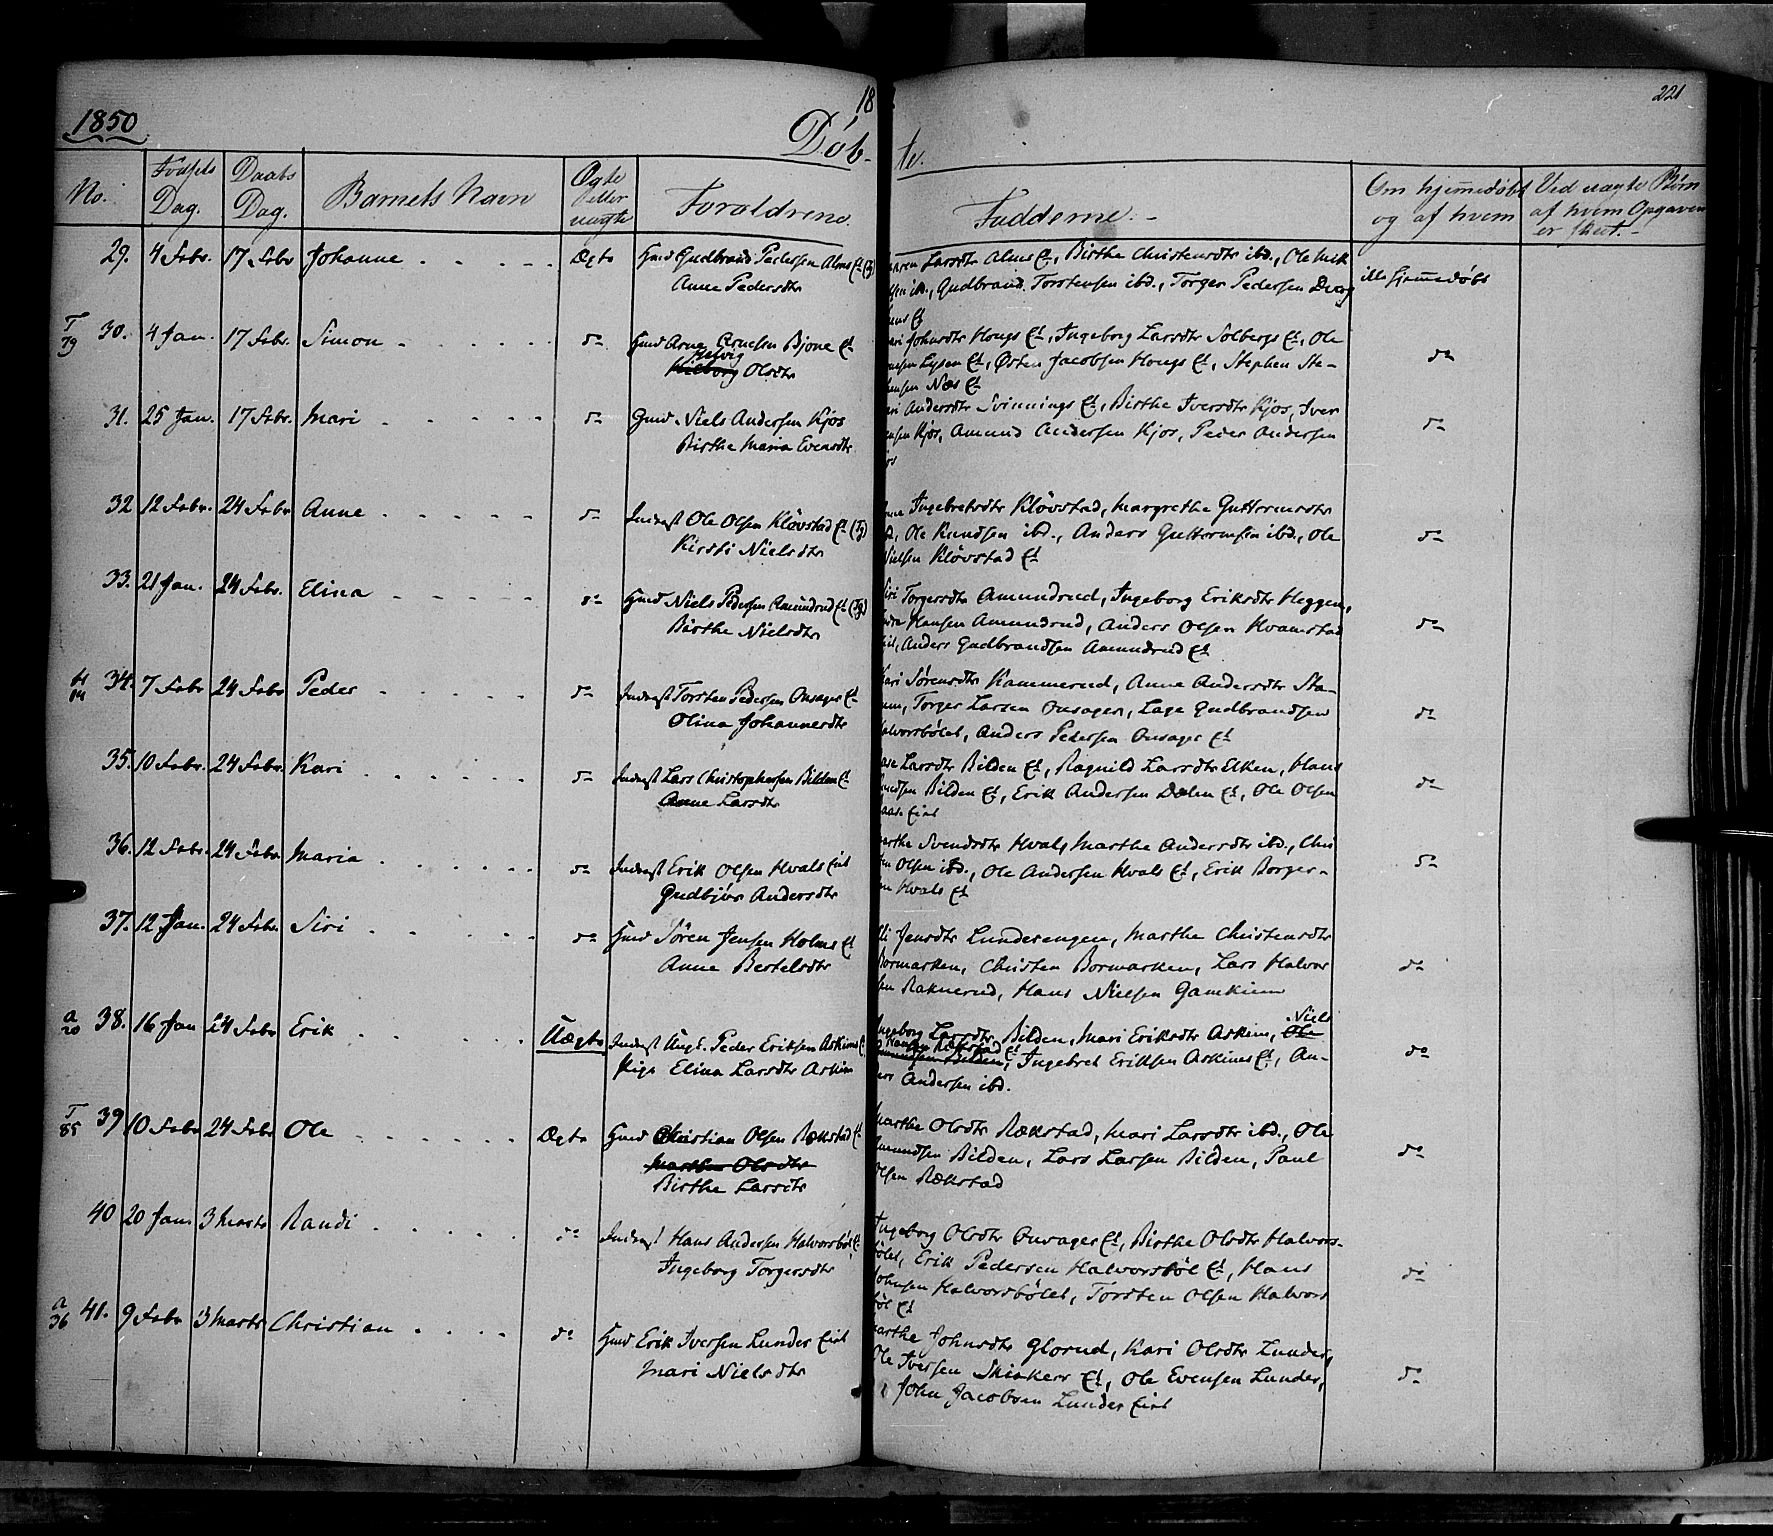 1850
18
221
Døb-
te.
No.
Fødsels Dag.
Daabs Dag.
Barnets Navn
Ægte eller uægte
Forældrene.
Fadderne. -
Om hjemmedøbt og af hvem
Ved uægte Børn af hvem Opgaven er skeet. -
29. 4 Febr. 17 Febr Johanne . . . . . Ægte Gmd Gudbrand Pedersen Alms Et (Tj)
Anne Pedersdtr
Larsdtr Alms Et, Birthe Christensdtr ibd., Ole
Gudbrand Torstensen ibd., Torger Pedersen
Et
ikke hjemmedøbt
T
79
30. 4 Jan. 17 Febr. Simon . . . . . do Gmd Arne Arnesen Bjone Et
Helvig
Olsdtr
Johnsdtr Hougs Et, Ingeborg Larsdtr Solbergs Et, Ole
Lysen Et, Østen Jacobsen Hougs Et, Stephen Ste-
Næs Et
do
31. 25 Jan. 17 Febr. Mari . . . . . do Gmd Niels Andersen Kjos
Birthe Maria Evensdtr
Andersdtr Svinnings Et, Birthe Iversdtr Kjos, Iver
Kjos, Amund Andersen Kjos, Peder Andersen
do
32 12 Febr. 24 Febr Anne . . . . . do Inderst Ole Olsen Kløvstad Et (Tj)
Kirsti Nielsdtr
Ingebretsdtr Kløvstad, Margrethe Guttormsdtr
Ole Knudsen ibd., Anders Guttormsen ibd., Ole
Nielsen Kløvstad Et
do
33. 21 Jan. 24 Febr. Elina . . . . . do Gmd Niels Pedersen Amundrud Et (Tj)
Birthe Nielsdtr
Siri Torgersdtr Amundrud, Ingeborg Eriksdtr Heggen,
Hansen Amundrud, Anders Olsen Kvamstad
Anders Gudbrandsen Amundrud Et
do
34. 7 Febr 24 Febr Peder . . . . . do Inderst Torsten Pedersen Onsager Et
Olina Johannesdtr
Kari Sørensdtr Kammerud, Anne Andersdtr Sta-
Torger Larsen Onsager, Lage Gudbrandsen
Halvorsbølet, Anders Pedersen Onsager Et
do
35. 10 Febr. 24 Febr. Kari . . . . . do Inderst Lars Christophersen Bilden Et
Anne Larsdtr
Larsdtr Bilden Et, Ragnild Larsdtr Elken, Hans
Bilden Et, Erik Andersen Dælen Et, Ole Olsen
Eiet
do
36. 12 Febr. 24 Febr. Maria . . . . . do Inderst Erik Olsen Hvals Eiet
Gudbjør Andersdtr
Marthe Svendsdtr Hval, Marthe Andersdtr ibd., Chri
Olsen ibd., Ole Andersen Hvals Et, Erik Borger-
Hvals Et
do
37. 12 Jan. 24 Febr. Siri . . . . . do Gmd Søren Jensen Holms Et
Anne Bertelsdtr
Jensdtr Lunderengen, Marthe Christensdtr
Bormarken, Christen Bormarken, Lars Halvor
sen Raknerud, Hans Nielsen Gamkinn
do
a
20
38. 16 Jan 24 Febr Erik . . . . . Uægte Inderst Ungk. Peder Eriksen Askims Et
Pige Elina Larsdtr Askim
Niels
Ingeborg Larsdtr Bilden, Mari Eriksdtr Askim, Ole
Amundsen Bilden, Ingebret Eriksen Askims Et, An-
ders Andersen ibd.
do
T
85
39 10 Febr 24 Febr Ole . . . . . Ægte Gmd Christian Olsen Rækstad Et
Marthe Olsdtr
Birthe Larsdtr
Marthe Olsdtr Rækstad, Mari Larsdtr ibd., Ole
Amundsen Bilden, Lars Larsen Bilden, Paul
Olsen Rækstad
do
40 20 Jan 3 Marts Randi . . . . . do Inderst Hans Andersen Halvorsbøl Et
Ingeborg Torgersdtr
Ingeborg Olsdtr Onsager Et, Birthe Olsdtr Halvors-
bølet, Erik Pedersen Halvorsbøl Et, Hans
Johnsen Halvorsbølet, Torsten Olsen Halvors
bøl Et
do
a
36
41. 9 Febr 3 Marts Christian . . . . do Gmd Erik Iversen Lunder Eiet
Mari Nielsdtr
Marthe Johnsdtr Glorud, Kari Olsdtr Lunder,
Ole Iversen Skiaker Et, Ole Evensen Lunder,
John Jacobsen Lunder Eiet
do